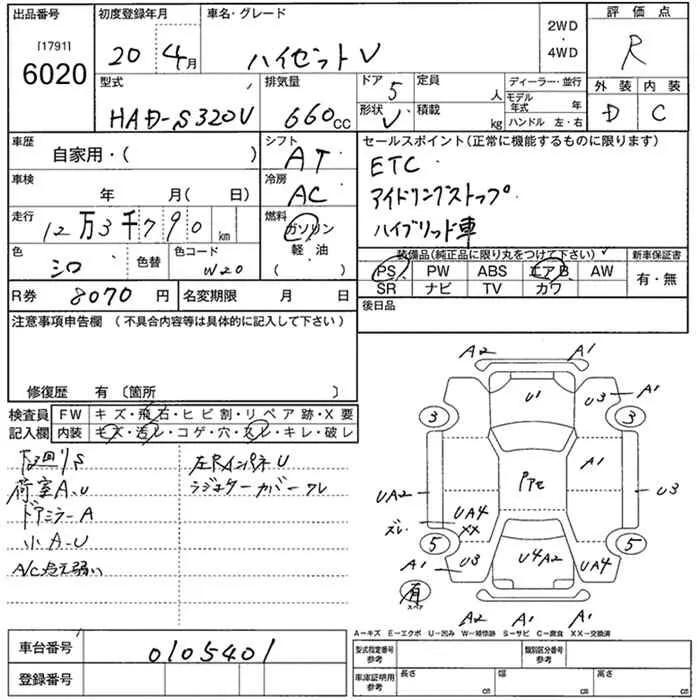 出品番号 初度登録年月 車名・グレード 2WD・4WD 評価点
[1791] 6020
20 4月
ハイゼットV
R
型式 排気量 ドア 5 定員 人 ディーラー・並行 外装 内装
HAD-S320V 660cc
形状 V 積載 kg モデル年式 年
ハンドル 左・右
D C
車歴 自家用・( )
シフト AT
セールスポイント(正常に機能するものに限ります)
ETC
アイドリングストップ
ハイブリッド車
車検 年 月( 日)
冷房 AC
走行 12万3千790km
燃料 ガソリン 軽・油 ( )
色 シロ 色替 色コード W20
装備品(純正品に限り丸をつけて下さい) 新車保証書
PS PW ABS エアB AW 有・無
SR ナビ TV カワ
R券 8070円 名変期限 月 日
後日品
注意事項申告欄 (不具合内容等は具体的に記入して下さい)
修復歴 有 〔箇所 〕
検査員 FW キズ・飛石・ヒビ割・リペア跡・X要
記入欄 内装 キズ・汚レ・コゲ・穴・スレ・キレ・破レ
荷室A、U
ラジエターカバークレ
ドアミラーA
小A-U
A2 A1
U1
U3 A1
3 3
A1
UA2 U3
ズレ UA4
XX
5 5
A1 U3 U4A2 UA4
有
スペア
A2 A1 A1
A-キズ E-エクボ U-凹み W-補修跡 S-サビ C-腐食 XX-交換済
車台番号 0105401
登録番号
型式指定番号 参考 類別区分番号 参考
車庫証明用 参考 長さ cm 幅 cm 高さ cm